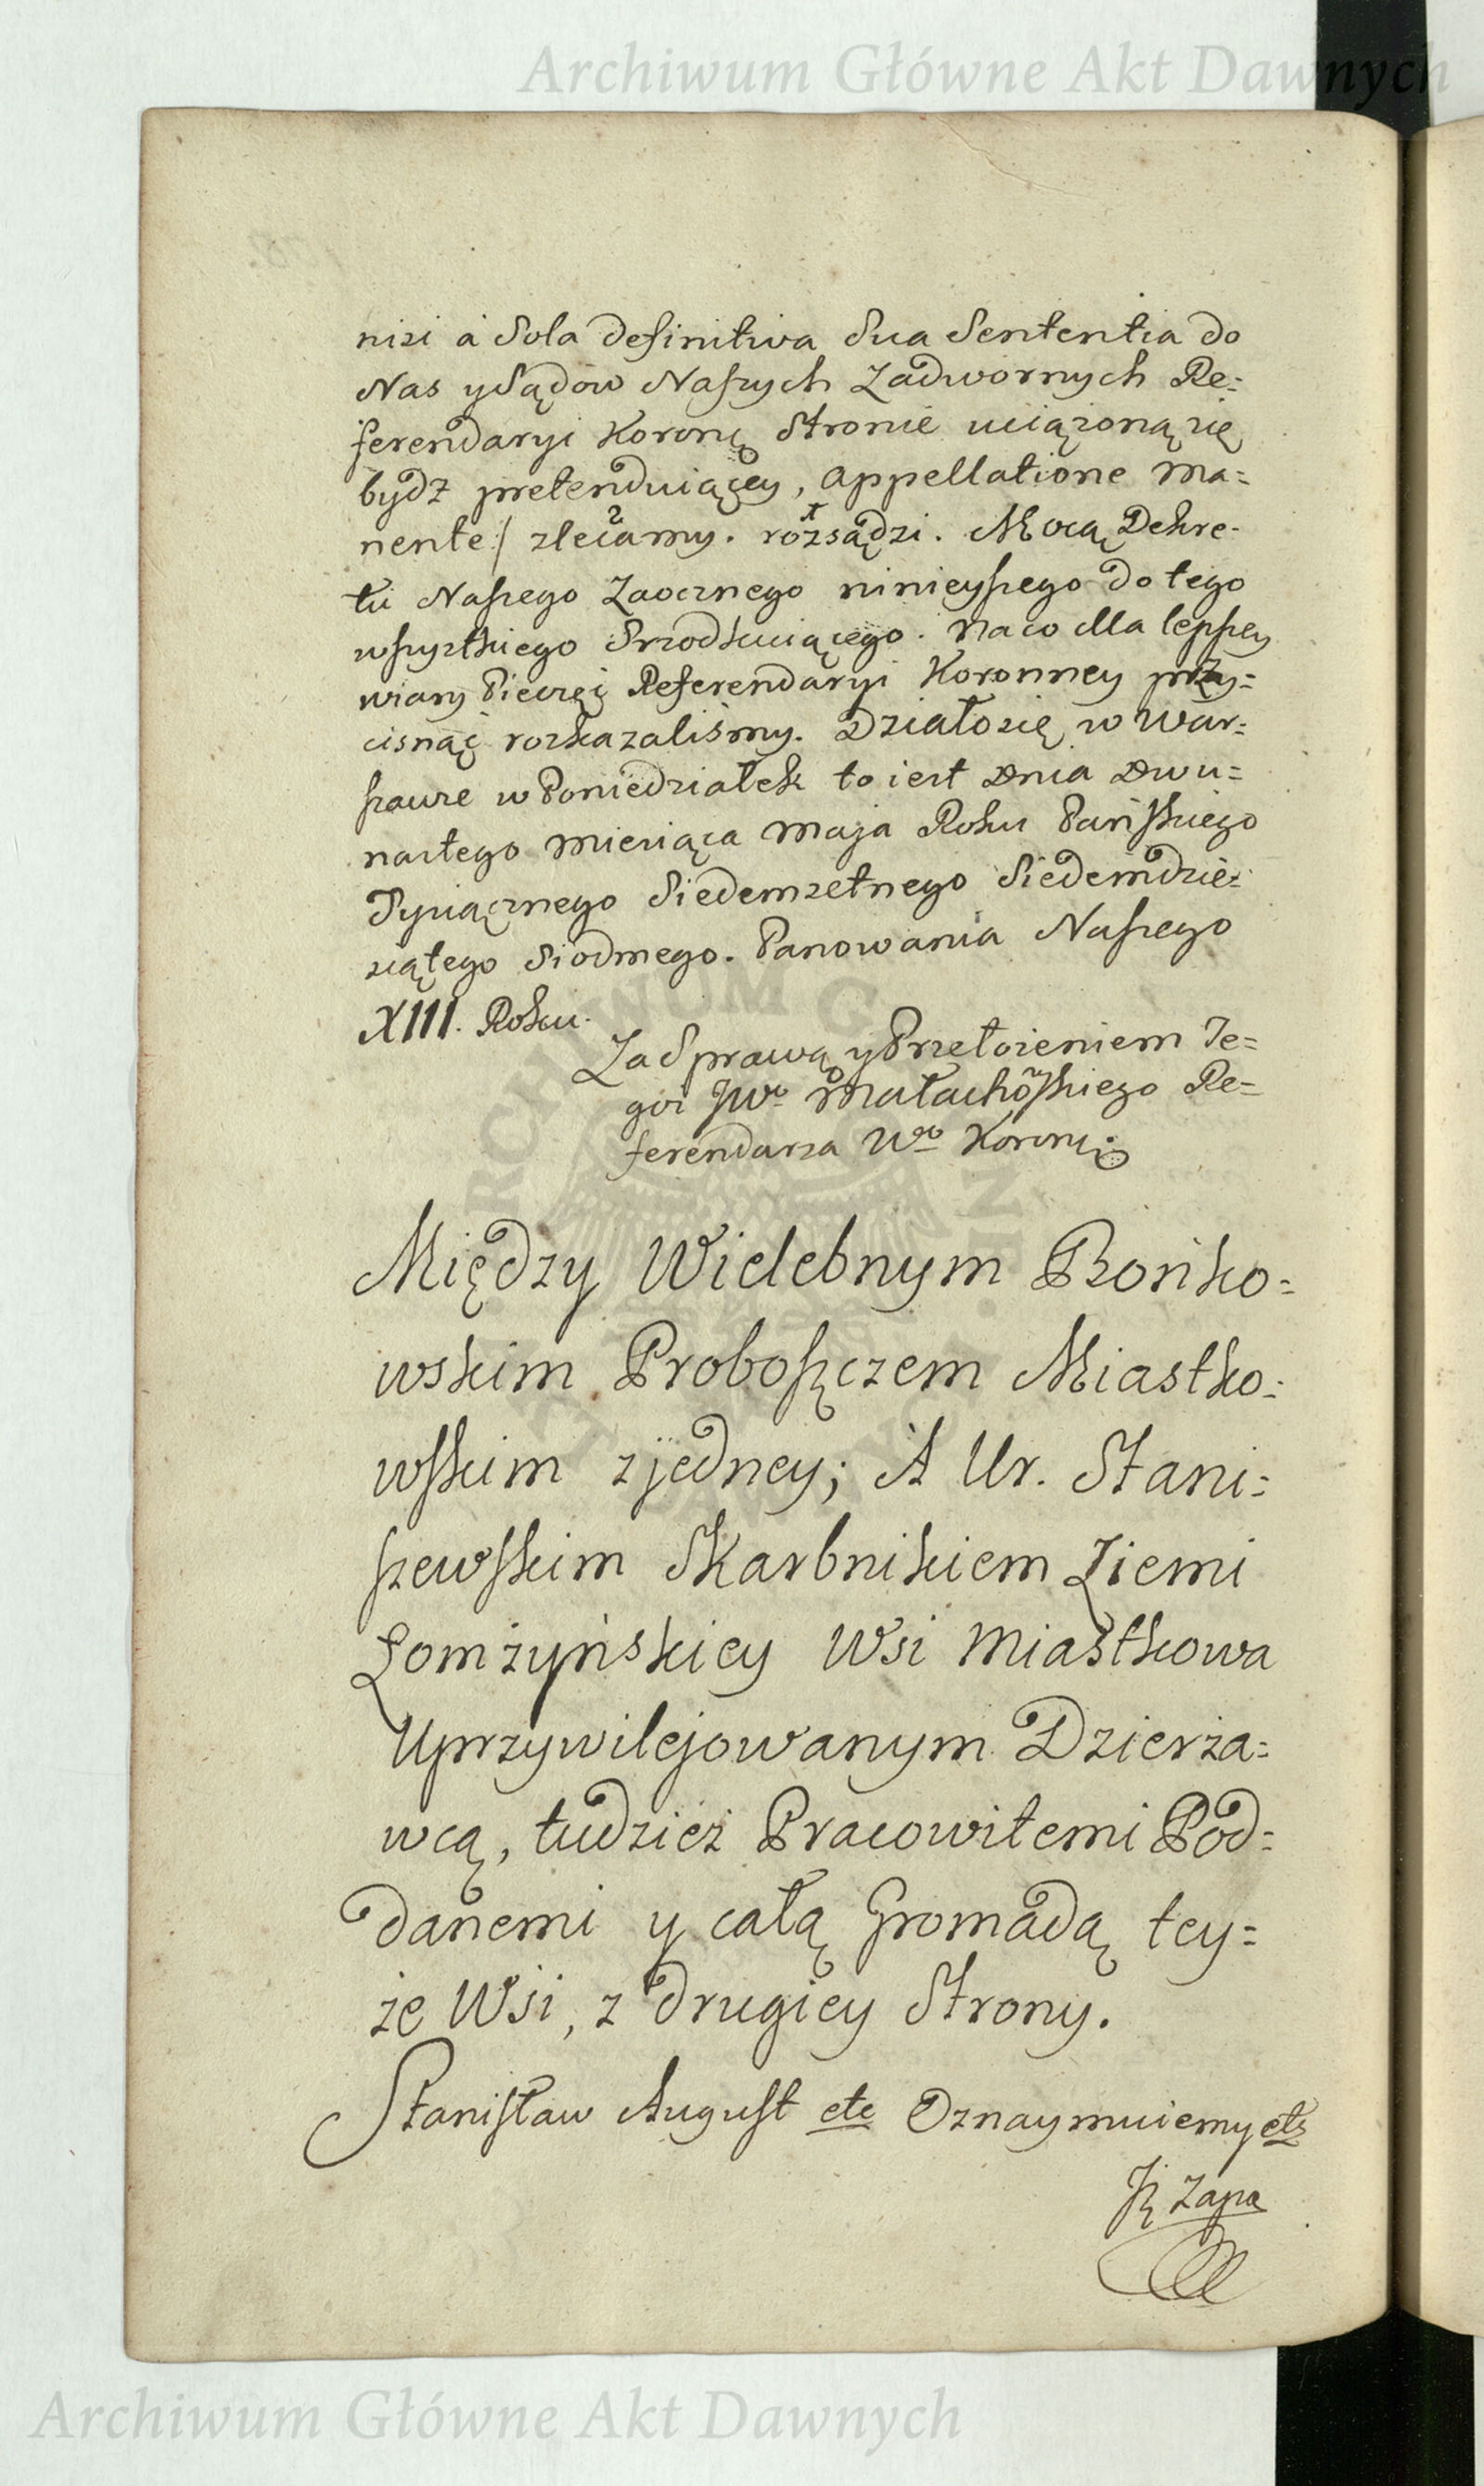 Archiwum Główne Akt Dawnych
nisi à Sola definitiva Sua Sententia do
Nas y Sądow Naszych Zadwornych Re=
ferendaryi Koronę Stronie uciążoną się
bydz pretenduiącey, appellatione ma=
nente:/ zlecamy. rozsądzi. Mocą Dekre-
tu Naszego Zaocznego ninieyszego do tego
wszystkiego Srzodkuiącego. Na co dla lepszey
wiary Pieczęć Referendaryi Koronney przy=
cisnąć roskazalismy. Działo się w War=
szawie w Poniedziałek to iest Dnia Dwu=
nastego Miesiąca Maja Roku Pańskiego
Tysiącznego Siedemsetnego Siedemdzie=
siątego Siodmego. Panowania Naszego
XIII. Roku.
Za Sprawą y Przełożeniem Je=
goż JWo Małachowskiego Re=
ferendarza Wgo Koronn:
Między Wielebnym Bońko=
wskim Proboszczem Miastko=
wskim z jedney; A Ur. Stani=
szewskim Skarbnikiem Ziemi
Łomżyńskiey Wsi Miastkowa
Uprzywilejowanym Dzierża=
wcą, tudzież Pracowitemi Pod=
danemi y całą Gromadą tey=
że Wsi, z drugiey Strony.
Stanisław August etc Oznaymuiemy etc
Archiwum Główne Akt Dawnych